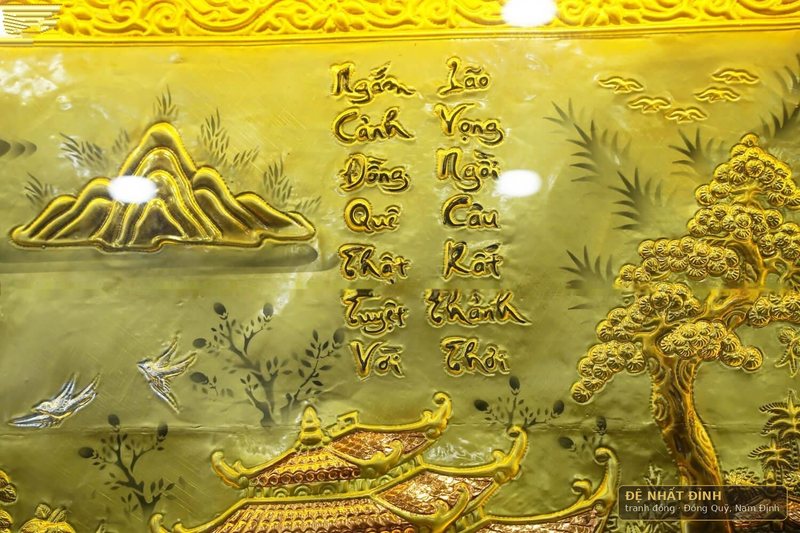 Ngắm Lão
Cảnh Vọng
Đồng Ngồi
Quê Câu
Thật Rất
Tuyệt Thảnh
Vời Thơi
ĐỆ NHẤT ĐỈNH
tranh đồng · Đồng Quỹ, Nam Định